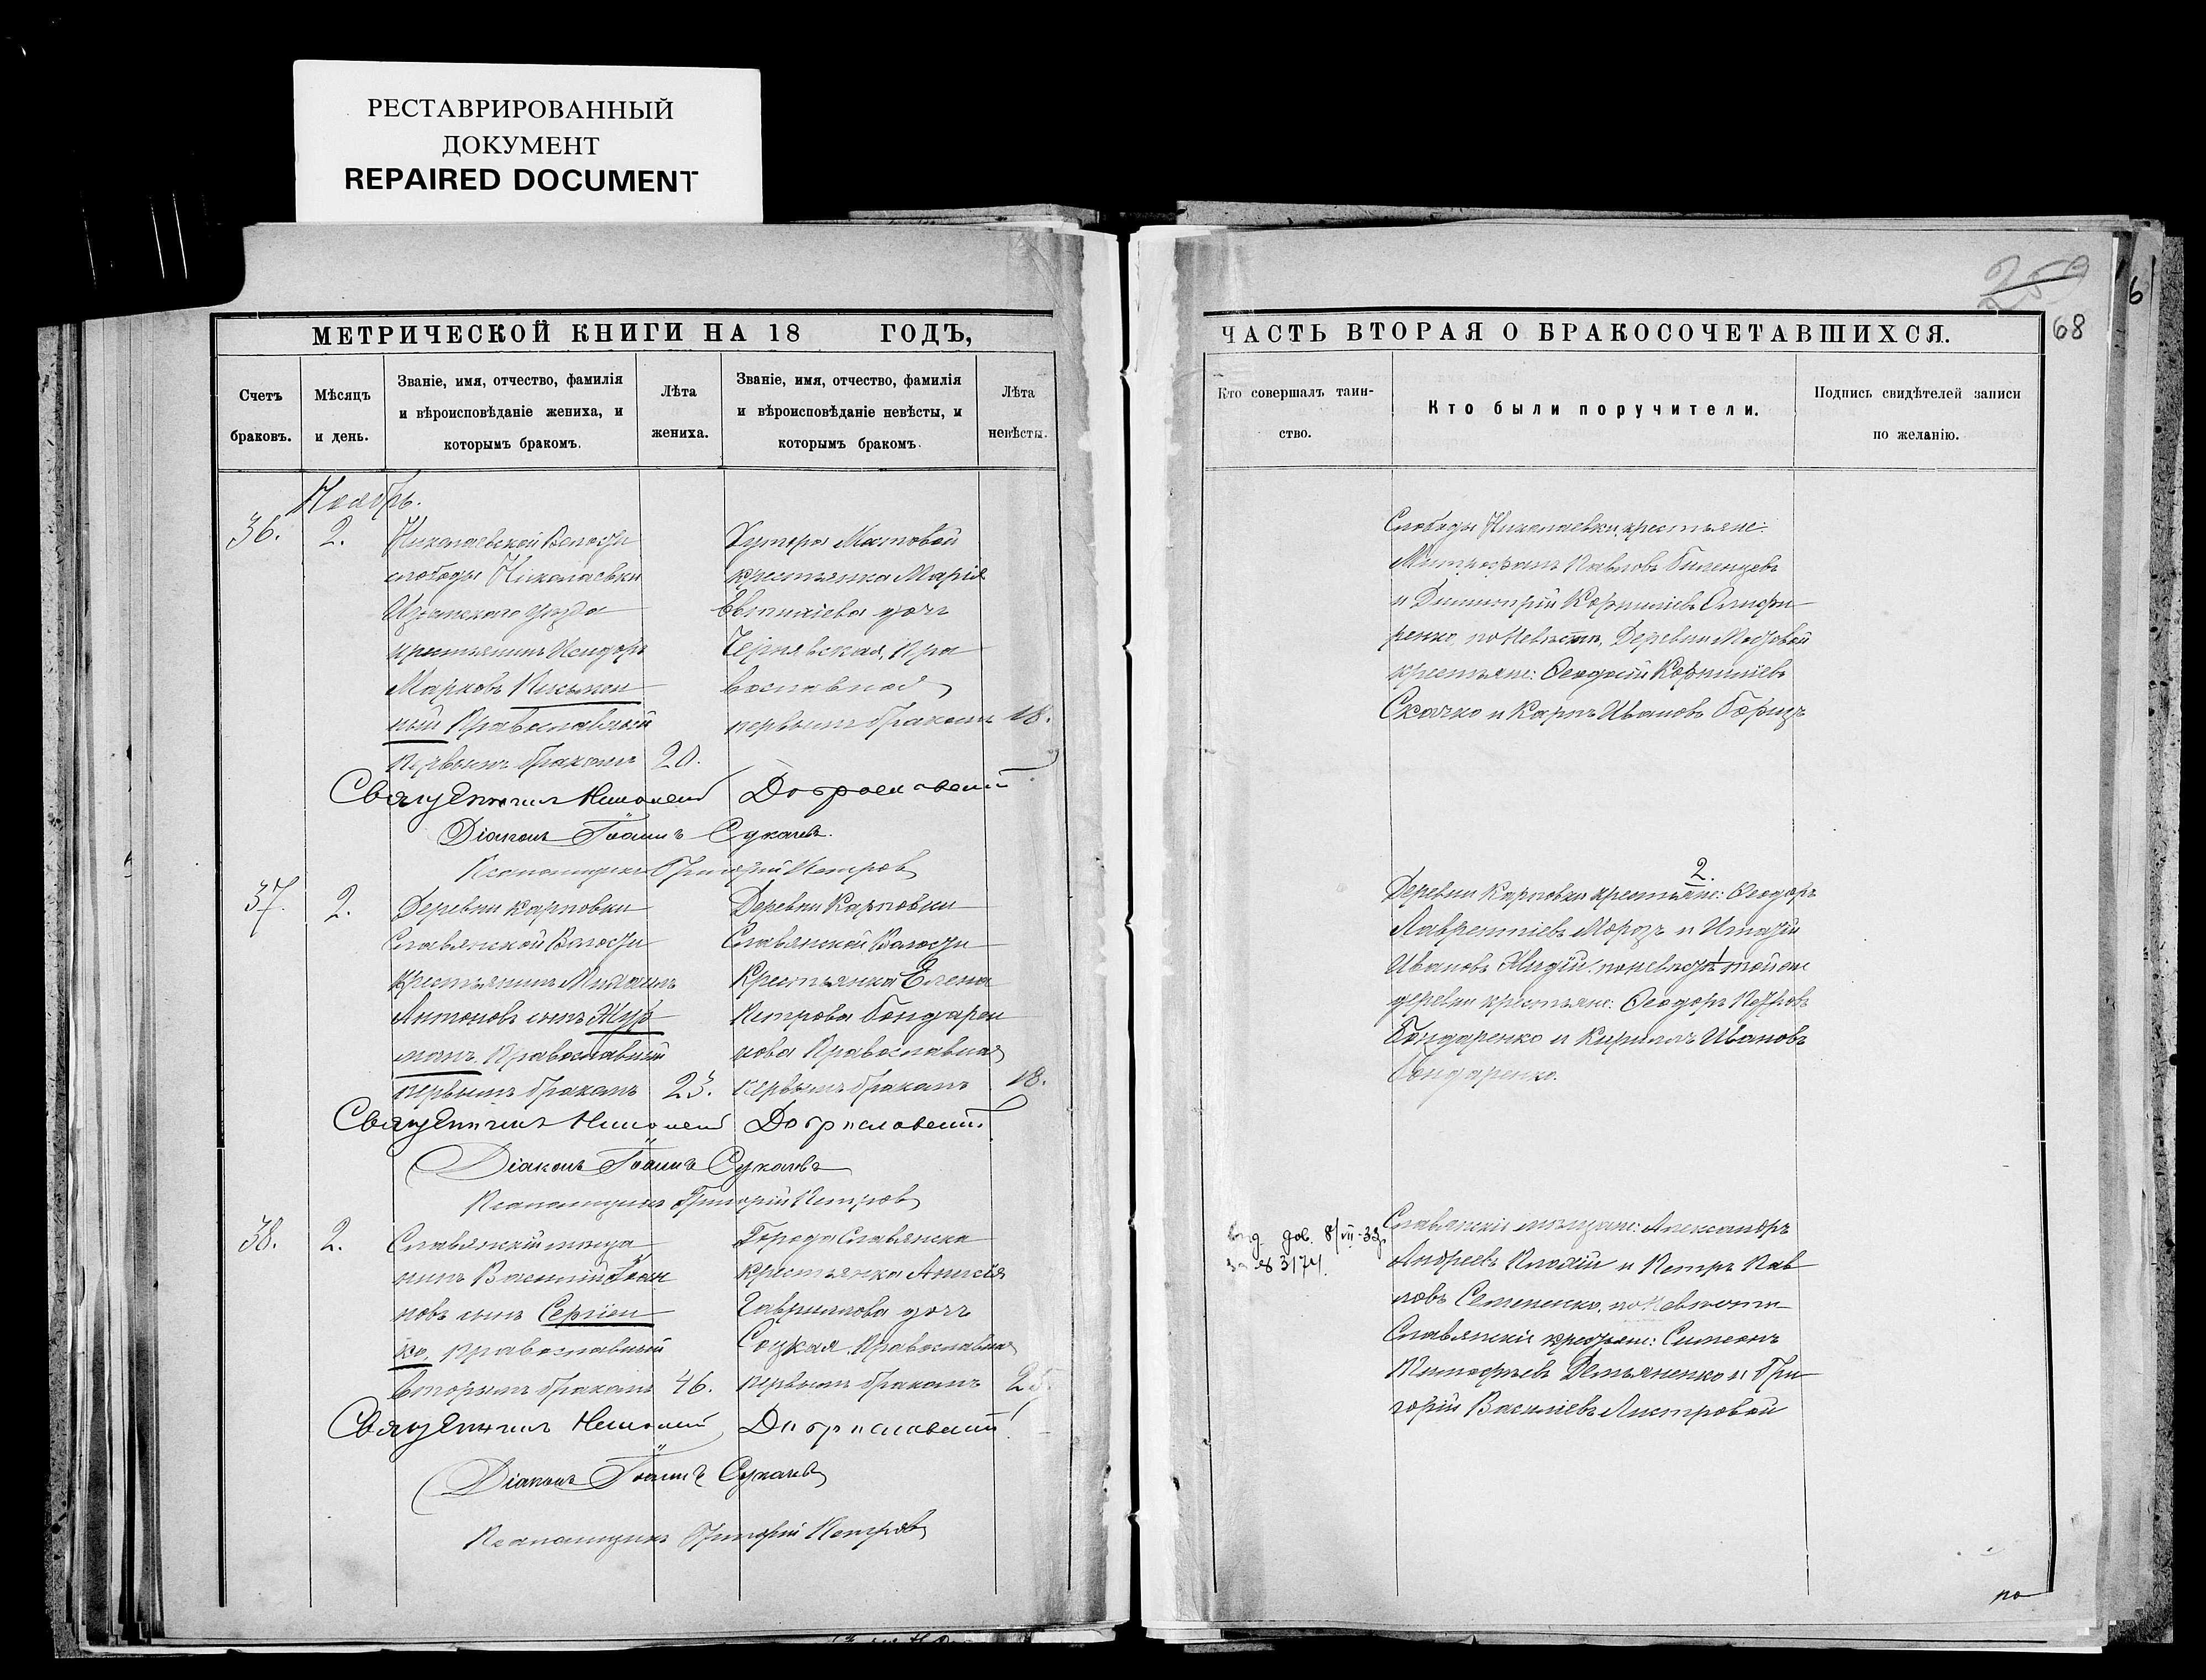 РЕСТАВРИРОВАННЫЙ
ДОКУМЕНТ
REPAIRED DOCUMENT
МЕТРИЧЕСКОЙ КНИГИ НА 18 ГОДЪ,
Счетъ браковъ.
Мѣсяцъ и день.
Званіе, имя, отчество, фамилія
и вѣроисповѣданіе жениха, и
которымъ бракомъ.
Лѣта жениха.
Званіе, имя, отчество, фамилія
и вѣроисповѣданіе невѣсты, и
которымъ бракомъ.
Лѣта невѣсты.
Ноябрь.
36.
2.
Николаевской Волости
слободы Николаевки
Изюмского уѣзда
крестьянинъ Исидоръ
Марковъ Письмен
ный Православный
первымъ бракомъ
20.
Хутора Маяковой
крестьянка Марія
Евтихіева дочь
Чернявская, Пра
вославной
первымъ бракомъ
18.
Священникъ Доброславскій
Діаконъ Іоаннъ Сукачевъ.
Псаломщикъ Григорій Петровъ
37.
2.
Деревни Карповки
Славянской Волости
Крестьянинъ Михаилъ
Антоновъ сынъ
Православный
первымъ бракомъ
23.
Деревни Карповки
Славянской Волости
Крестьянка Елена
Петрова Бондарен
кова Православная
первымъ бракомъ
18.
Священникъ Доброславскій
Діаконъ Іоаннъ Сукачевъ
Псаломщикъ Григорій Петровъ
38.
2.
Славянскій мѣща
нинъ Василій Іоан
новъ сынъ Сергіен
ко, православный
вторымъ бракомъ
46.
Города Славянска
крестьянка Анисія
Гаврилова дочь
Соцкая Православная
первымъ бракомъ
25.
Священникъ Доброславскій
Діаконъ Іоаннъ Сукачевъ
Псаломщикъ Григорій Петровъ
259
68
6
ЧАСТЬ ВТОРАЯ О БРАКОСОЧЕТАВШИХСЯ.
Кто совершалъ таин-
ство.
Кто были поручители.
Подпись свидѣтелей записи
по желанію.
Слободы Николаевки крестьяне:
Митрофанъ Павловъ
и Димитрій Корниліевъ Олифи
ренко, по Невѣстѣ, Деревни
крестьяне: Ѳеодосій Корниліевъ
Скачко и Карпъ Ивановъ
2.
Деревни Карповки крестьяне: Ѳеодоръ
Лаврентіевъ Морозъ и Игнатій
Ивановъ по невѣстѣ той же
деревни крестьяне: Ѳеодоръ Петровъ
Бондаренко и Кириллъ Ивановъ
Бондаренко.
дов. 8/VII-33
за № 3174.
Славянскіе мѣщане: Александръ
Андреевъ и Петръ Пав
ловъ Семененко, по Невѣстѣ
Славянскіе крестьяне: Симеонъ
Тимофѣевъ Демьяненко и Гри
горій Василіевъ Листровой
по